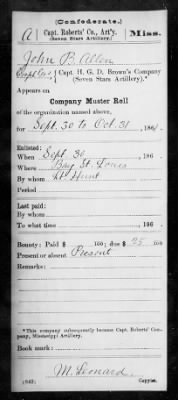 (Confederate.)
A | Capt. Roberts' Co., Art'y. | Miss.
(Seven Stars Artillery.)
John B. Allen
Capt. H. G. D. Brown's Company
(Seven Stars Artillery).*
Appears on
Company Muster Roll
of the organization named above,
for Sept. 30 to Oct. 31, 186 .
Enlisted:
When Sept. 30, 186 .
Where Bay St. Louis
By whom Lt Hunt
Period
Last paid:
By whom
To what time , 186 .
Bounty: Paid $ 100; due $ 25 100
Present or absent Present
Remarks:
*This company subsequently became Capt. Roberts' Company, Mississippi Artillery.
Book mark:
M. Leonard
(642) Copyist.